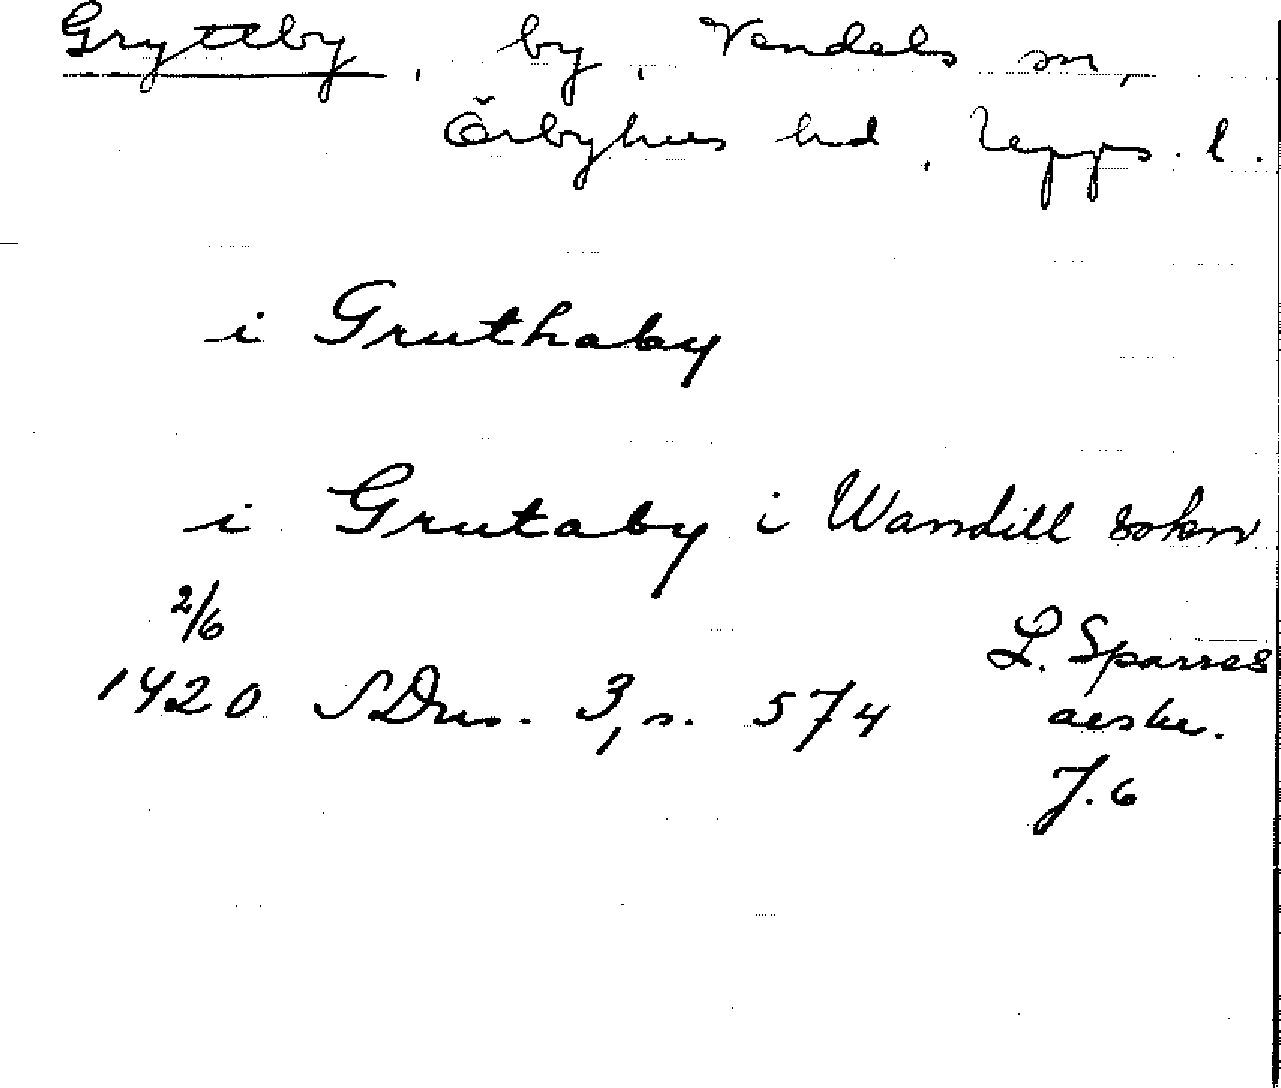 Gryttby, by, Vendels sn,
Örbyhus hd, Upps. l.
i Gruthaby
i Grutaby i Wandill sokn
2/6
1420 SDns. 3, s. 574
L. Sparres
aeskr.
J. 6